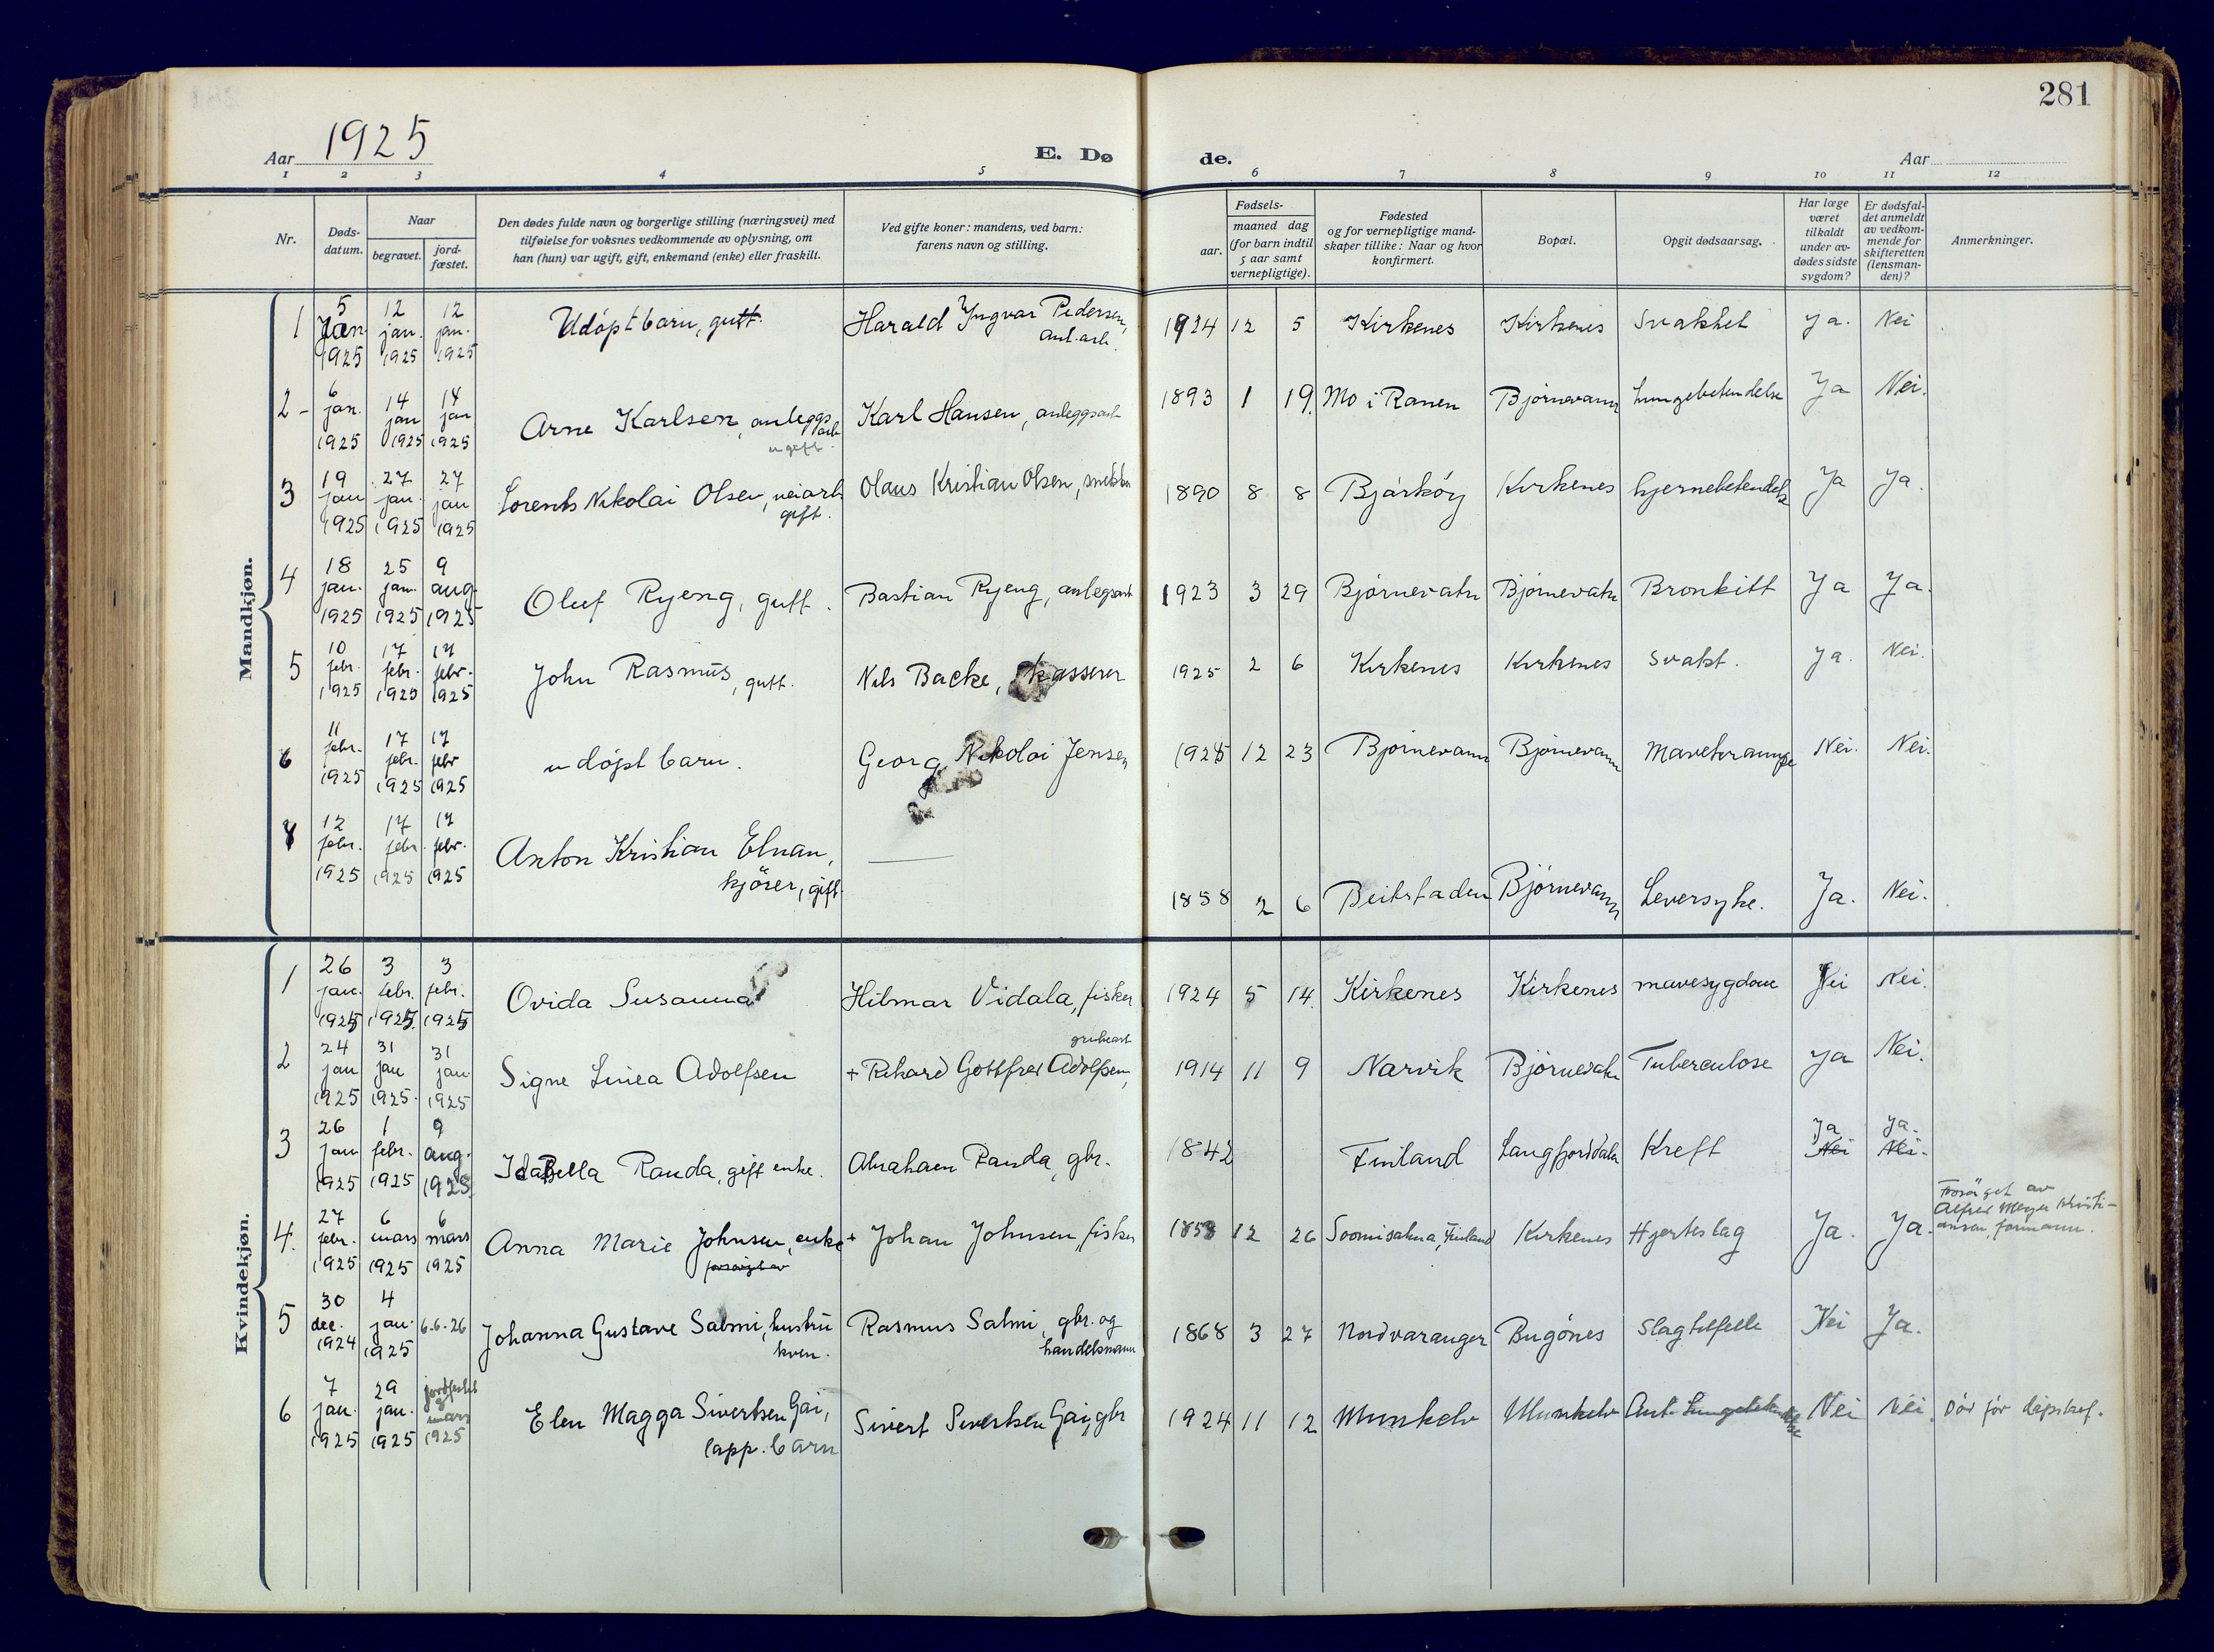 281
Aar 1925
E. Dø
de.
Aar
1 2 3 4 5 6 7 8 9 10 11 12
Nr.
Døds-
datum.
Naar
begravet.
jord-
fæstet.
Den dødes fulde navn og borgerlige stilling (næringsvei) med
tilføielse for voksnes vedkommende av oplysning, om
han (hun) var ugift, gift, enkemand (enke) eller fraskilt.
Ved gifte koner: mandens, ved barn:
farens navn og stilling.
Fødsels-
aar.
maaned dag
(for barn indtil
5 aar samt
vernepligtige).
Fødested
og for vernepligtige mand-
skaper tillike: Naar og hvor
konfirmert.
Bopæl.
Opgit dødsaarsag.
Har læge
været
tilkaldt
under av-
dødes sidste
sygdom?
Er dødsfal-
det anmeldt
av vedkom-
mende for
skifteretten
(lensman-
den)?
Anmerkninger.
Mandkjøn.
1 5 jan. 1925 12 jan. 1925 12 jan. 1925 Udøpt barn, gutt. Harald Yngvar Pedersen, anl.arb. 1924 12 5 Kirkenes Kirkenes Svakhet Ja. Nei
2 - 6 jan. 1925 14 jan 1925 14 jan 1925 Arne Karlsen, anleggsarb. ugift. Karl Hansen, anleggsarb 1893 1 19. Mo i Ranen Bjørnevann Lungebetendelse Ja Nei.
3 19 jan 1925 27 jan. 1925 27 jan 1925 Lorents Nikolai Olsen, veiarb. gift. Olaus Kristian Olsen, snekker 1890 8 8 Bjarkøy Kirkenes hjernebetendelse Ja Ja.
4 18 jan. 1925 25 jan. 1925 9 aug. 1925 Oluf Ryeng, gutt. Bastian Ryeng, anlegsarb 1923 3 29 Bjørnevatn Bjørnevatn Bronkitt Ja Ja.
5 10 febr. 1925 17 febr. 1925 17 febr. 1925 John Rasmus, gutt. Nils Backe, kasserer 1925 2 6 Kirkenes Kirkenes svakt. Ja. Nei.
6 11 febr. 1925 17 febr. 1925 17 febr 1925 udøpt barn. Georg Nikolai Jensen 1925 12 23 Bjørnevann Bjørnevann Mavekrampe Nei. Nei.
12 febr. 1925 17 febr. 1925 17 febr. 1925 Anton Kristian Elnan, kjører, gift. 1858 2 6 Beitstaden Bjørnevann Leversyke. Ja. Nei.
Kvindekjøn.
1 26 jan. 1925 3 febr. 1925. 3 febr. 1925 Ovida Susanna Hilmar Vidala, fisker 1924 5 14. Kirkenes Kirkenes mavesygdom Nei Nei.
2 24 jan 1925 31 jan 1925. 31 jan. 1925 Signe Linea Adolfsen + Rikard Gottfred Adolfsen, grubearb 1914 11 9 Narvik Bjørnevatn Tuberculose Ja Nei.
3 26 jan 1925 1 febr. 1925 9 aug. 1925. Isabella Randa, gift enke. Abraham Randa, gbr. 1842 Finland Langfjorddalen Kreft Ja Nei Ja. Nei.
4. 27 febr. 1925 6 mars 1925 6 mars 1925 Anna Marie Johnsen, enke forsørget av + Johan Johnsen, fisker 1853 12 26 Soomisalma, Finland Kirkenes Hjerteslag Ja. Ja. Forsørget av Alfred Meyer Kristi-
ansen, formann.
5 30 dec. 1924 4 jan. 1925 6-6-26 Johanna Gustave Salmi, hustru kven. Rasmus Salmi, gbr. og handelsmann 1868 3 27 Nordvaranger Bugønes Slagtilfelle Nei Ja.
6 7 jan. 1925 29 jan. 1925 jordfestet 8 mars 1925 Elen Magga Sivertsen Gai, lapp. barn Sivert Sivertsen Gai, gbr 1924 11 12 Munkelv Munkelv Ant. Lungebetendelse Nei Nei. Død før dåpsbef.